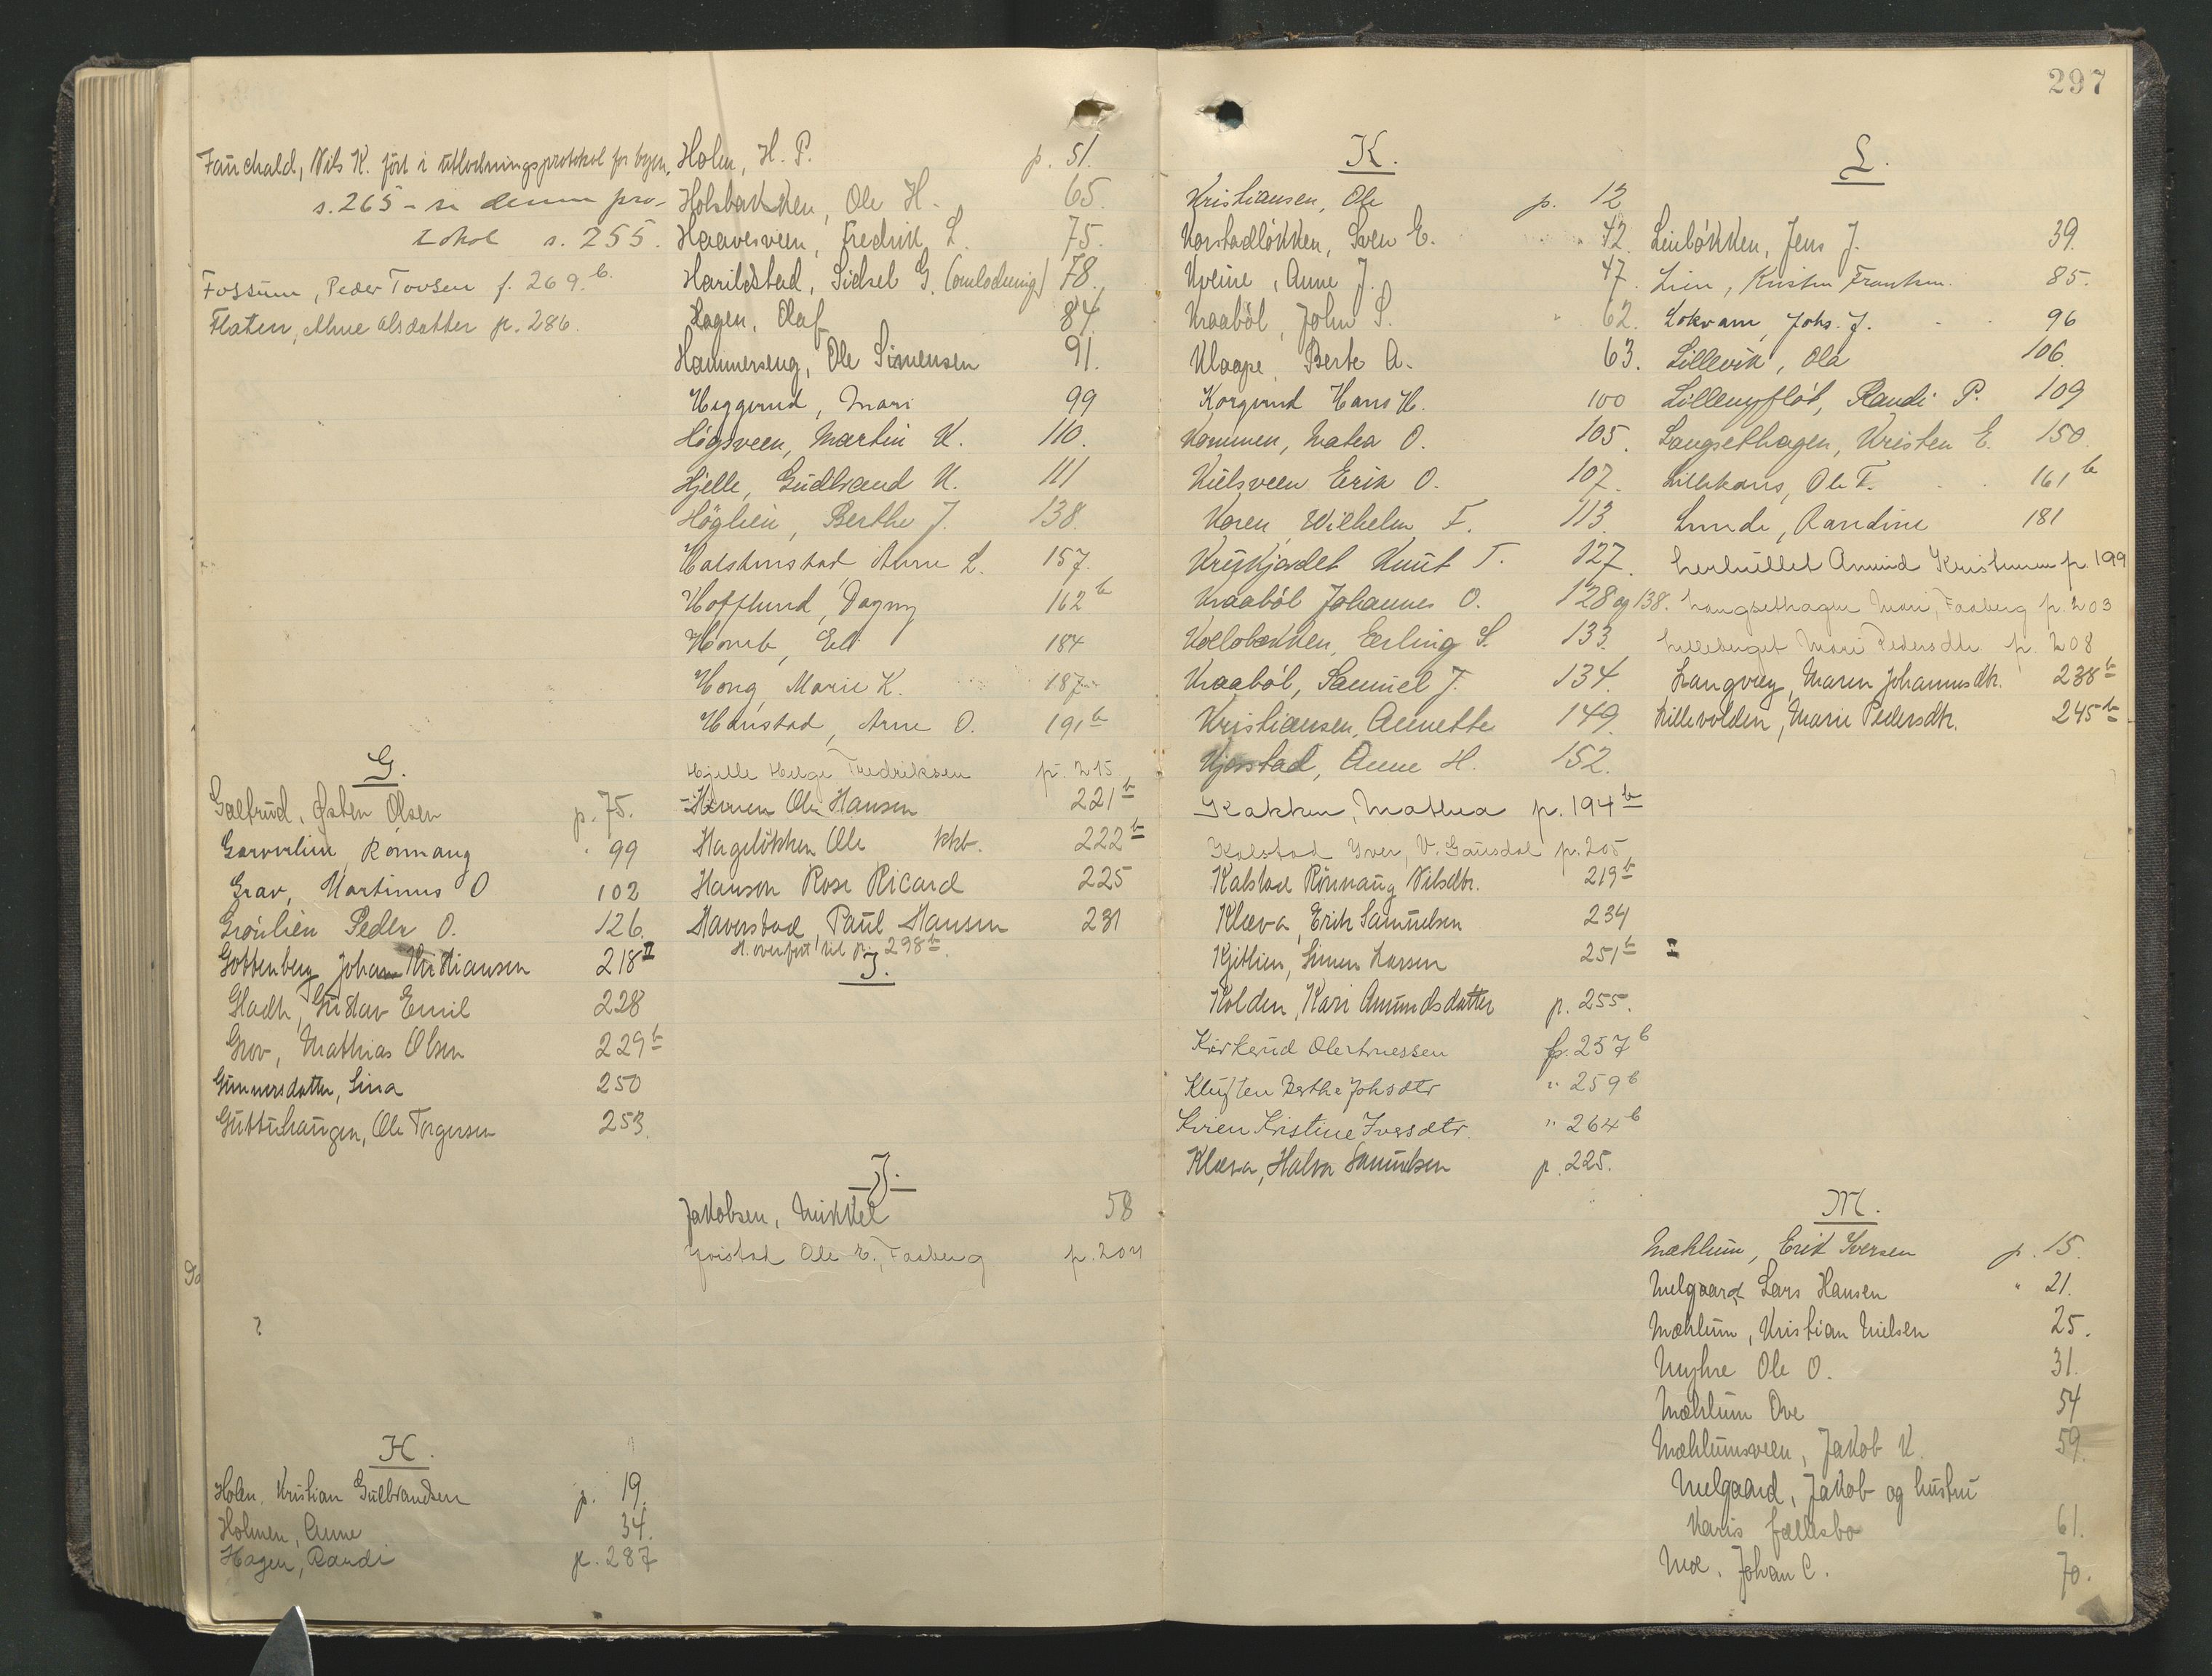 Fauchald, Nils K. ført i utlodningsprotokol for byen,
s. 265 - se denne pro-
tokol s. 255.
Fossum, Peder Tovsen f. 269 b.
Flaten, Anne Olsdatter p. 286.
G.
Galtrud, Østen Olsen p. 75.
Rønnaug " 99
Grav, Martinus O 102
Grønlien Peder O. 126.
Gottenberg Johan Kristiansen 218 II
Gladh, Gustav Emil 228
Grov, Mathias Olsen 229 b
Gunnersdatter, Lina 250
Guttuhaugen, Ole Torgersen 253.
H.
Holm, Kristian Gulbrandsen p. 19.
Holmen, Anne 34.
Hagen, Randi p. 287
Holm, H. P. p. 51.
Holsbakken, Ole H. 65.
Haavesveen, Fredrik L. 75.
Harildstad, Sidsel G. (omlodning) 78.
Hagen, Olaf 84.
Hammerseng, Ole Simensen 91.
Heggerud, Mari 99
Høgsveen, Martin K. 110.
Hjelle, Gudbrand K. 111
Høglien, Berthe J. 138.
Arne L. 157.
Hofflund, Dagny 162 b
Homb, Ell 184
Hong, Marie K. 187
Hanstad, Arne O. 191 b
Hjelle Helge Fredriksen p. 215
Ole Hansen 221 b
Hageløkken Ole kkb. 222 b
Hanson Rose Ricard 225
Haverstad, Paul Hansen 231
H. overført til p. 298 b.
I.
J.
Jakobsen, Mikkel 58
Jørstad Ole E., Faaberg p. 204
297
K.
Kristiansen, Ole p. 12
Korstadløkken, Sven E. 42.
Kveine, Anne J. 47.
Kraabøl, John S. " 62.
Klaape, Berte A. 63.
Korgerud Hans H. 100
Kommen, Matea O. 105.
Kulsveen Erik O. 107.
Koren, Wilhelm F. 113.
Knut T. 127.
Kraabøl Johannes O. 128 og 138.
Erling S. 133.
Kraabøl, Samuel J. 134.
Kristiansen, Annette 149.
Kjørstad, Anne H. 152.
Kakken, Mathea p. 194 b
Kalstad Iver, V. Gausdal p. 205
Kalstad Rønnaug Nilsdtr. 219 b
Kleva, Erik Samuelsen 234
Kjitlien, Simen Larsen 251 b I
Kolden, Kari Amundsdatter p. 255.
Kirkerud Ole p. 257 b
Kluften Berthe Johsdtr " 259 b
Kvien Kristine Iversdtr. " 264 b
Kleva, Halvor Samuelsen p. 225.
L.
Linløkken, Jens J. 39.
Lien, Kristen Frantsen. 85.
Lokvam, Johs. J. 96
Lillevik, Ola 106
Randi P. 109
Langsethagen, Kristen E. 150.
Ole T. 161 b
Lunde, Randine 181
Amund Kristensen p. 199
Langsethagen Mari, Faaberg p. 203
Lilleberget Mari Pedersdtr p. 208
Langvey, Maren Johannesdtr. 238 b
Lillevolden, Marie Pedersdtr. 245 b
M.
Mæhlum, Erik Iversen p. 15.
Melgaard Lars Hansen " 21.
Mæhlum, Kristian Nielsen 25.
Myhre Ole O. 31.
Mæhlum Ove 54
Mæhlumsveen, Jakob K. 59.
Melgaard, Jakob og hustru
Karis fællesbo 61.
Moe, Johan C. 70.